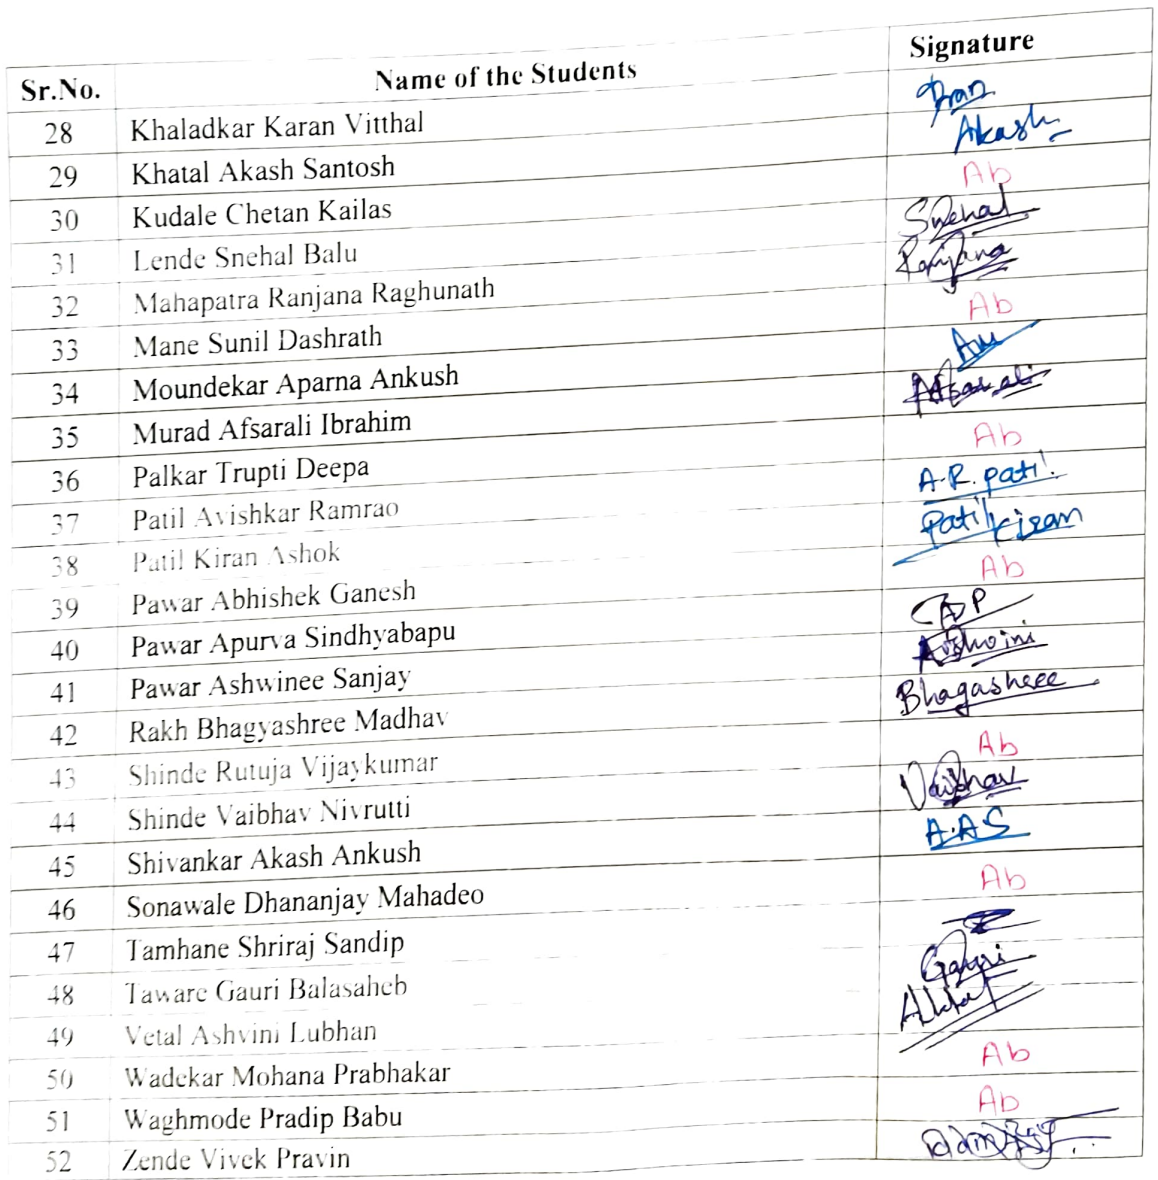 Sr.No. Name of the Students Signature
28 Khaladkar Karan Vitthal
29 Khatal Akash Santosh Akash
30 Kudale Chetan Kailas Ab
31 Lende Snehal Balu Snehal
32 Mahapatra Ranjana Raghunath Ranjana
33 Mane Sunil Dashrath Ab
34 Moundekar Aparna Ankush
35 Murad Afsarali Ibrahim Afsarali
36 Palkar Trupti Deepa Ab
37 Patil Avishkar Ramrao A.R. patil.
38 Patil Kiran Ashok Patil Kiran
39 Pawar Abhishek Ganesh Ab
40 Pawar Apurva Sindhyabapu AP
41 Pawar Ashwinee Sanjay
42 Rakh Bhagyashree Madhav Bhagashree
43 Shinde Rutuja Vijaykumar Ab
44 Shinde Vaibhav Nivrutti Vaibhav
45 Shivankar Akash Ankush A.A.S
46 Sonawale Dhananjay Mahadeo Ab
47 Tamhane Shriraj Sandip
48 Taware Gauri Balasaheb Gauri
49 Vetal Ashvini Lubhan
50 Wadekar Mohana Prabhakar Ab
51 Waghmode Pradip Babu Ab
52 Zende Vivek Pravin